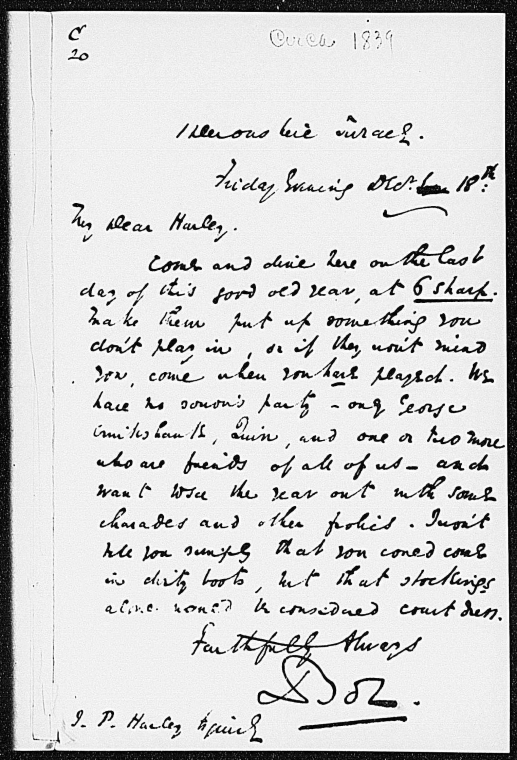 C
20
Circa 1839
Devonshire Terrace.
Friday Evening Decr. 18th.
My Dear Harley.
Come and dine here on the last
day of this good old year, at 6 sharp.
Make them put up something you
don't play in, or if they won't mind
you, come when you have played. We
have no sonons party - only George
Cruikshank, Quin, and one or two more
who are friends of all of us - and
want to see the year out with some
charades and other frolics. I won't
tell you simply that you could come
in dirty boots, but that stockings
alone would be considered court dress.
Faithfully Always
Boz.
J. P. Harley Esquire